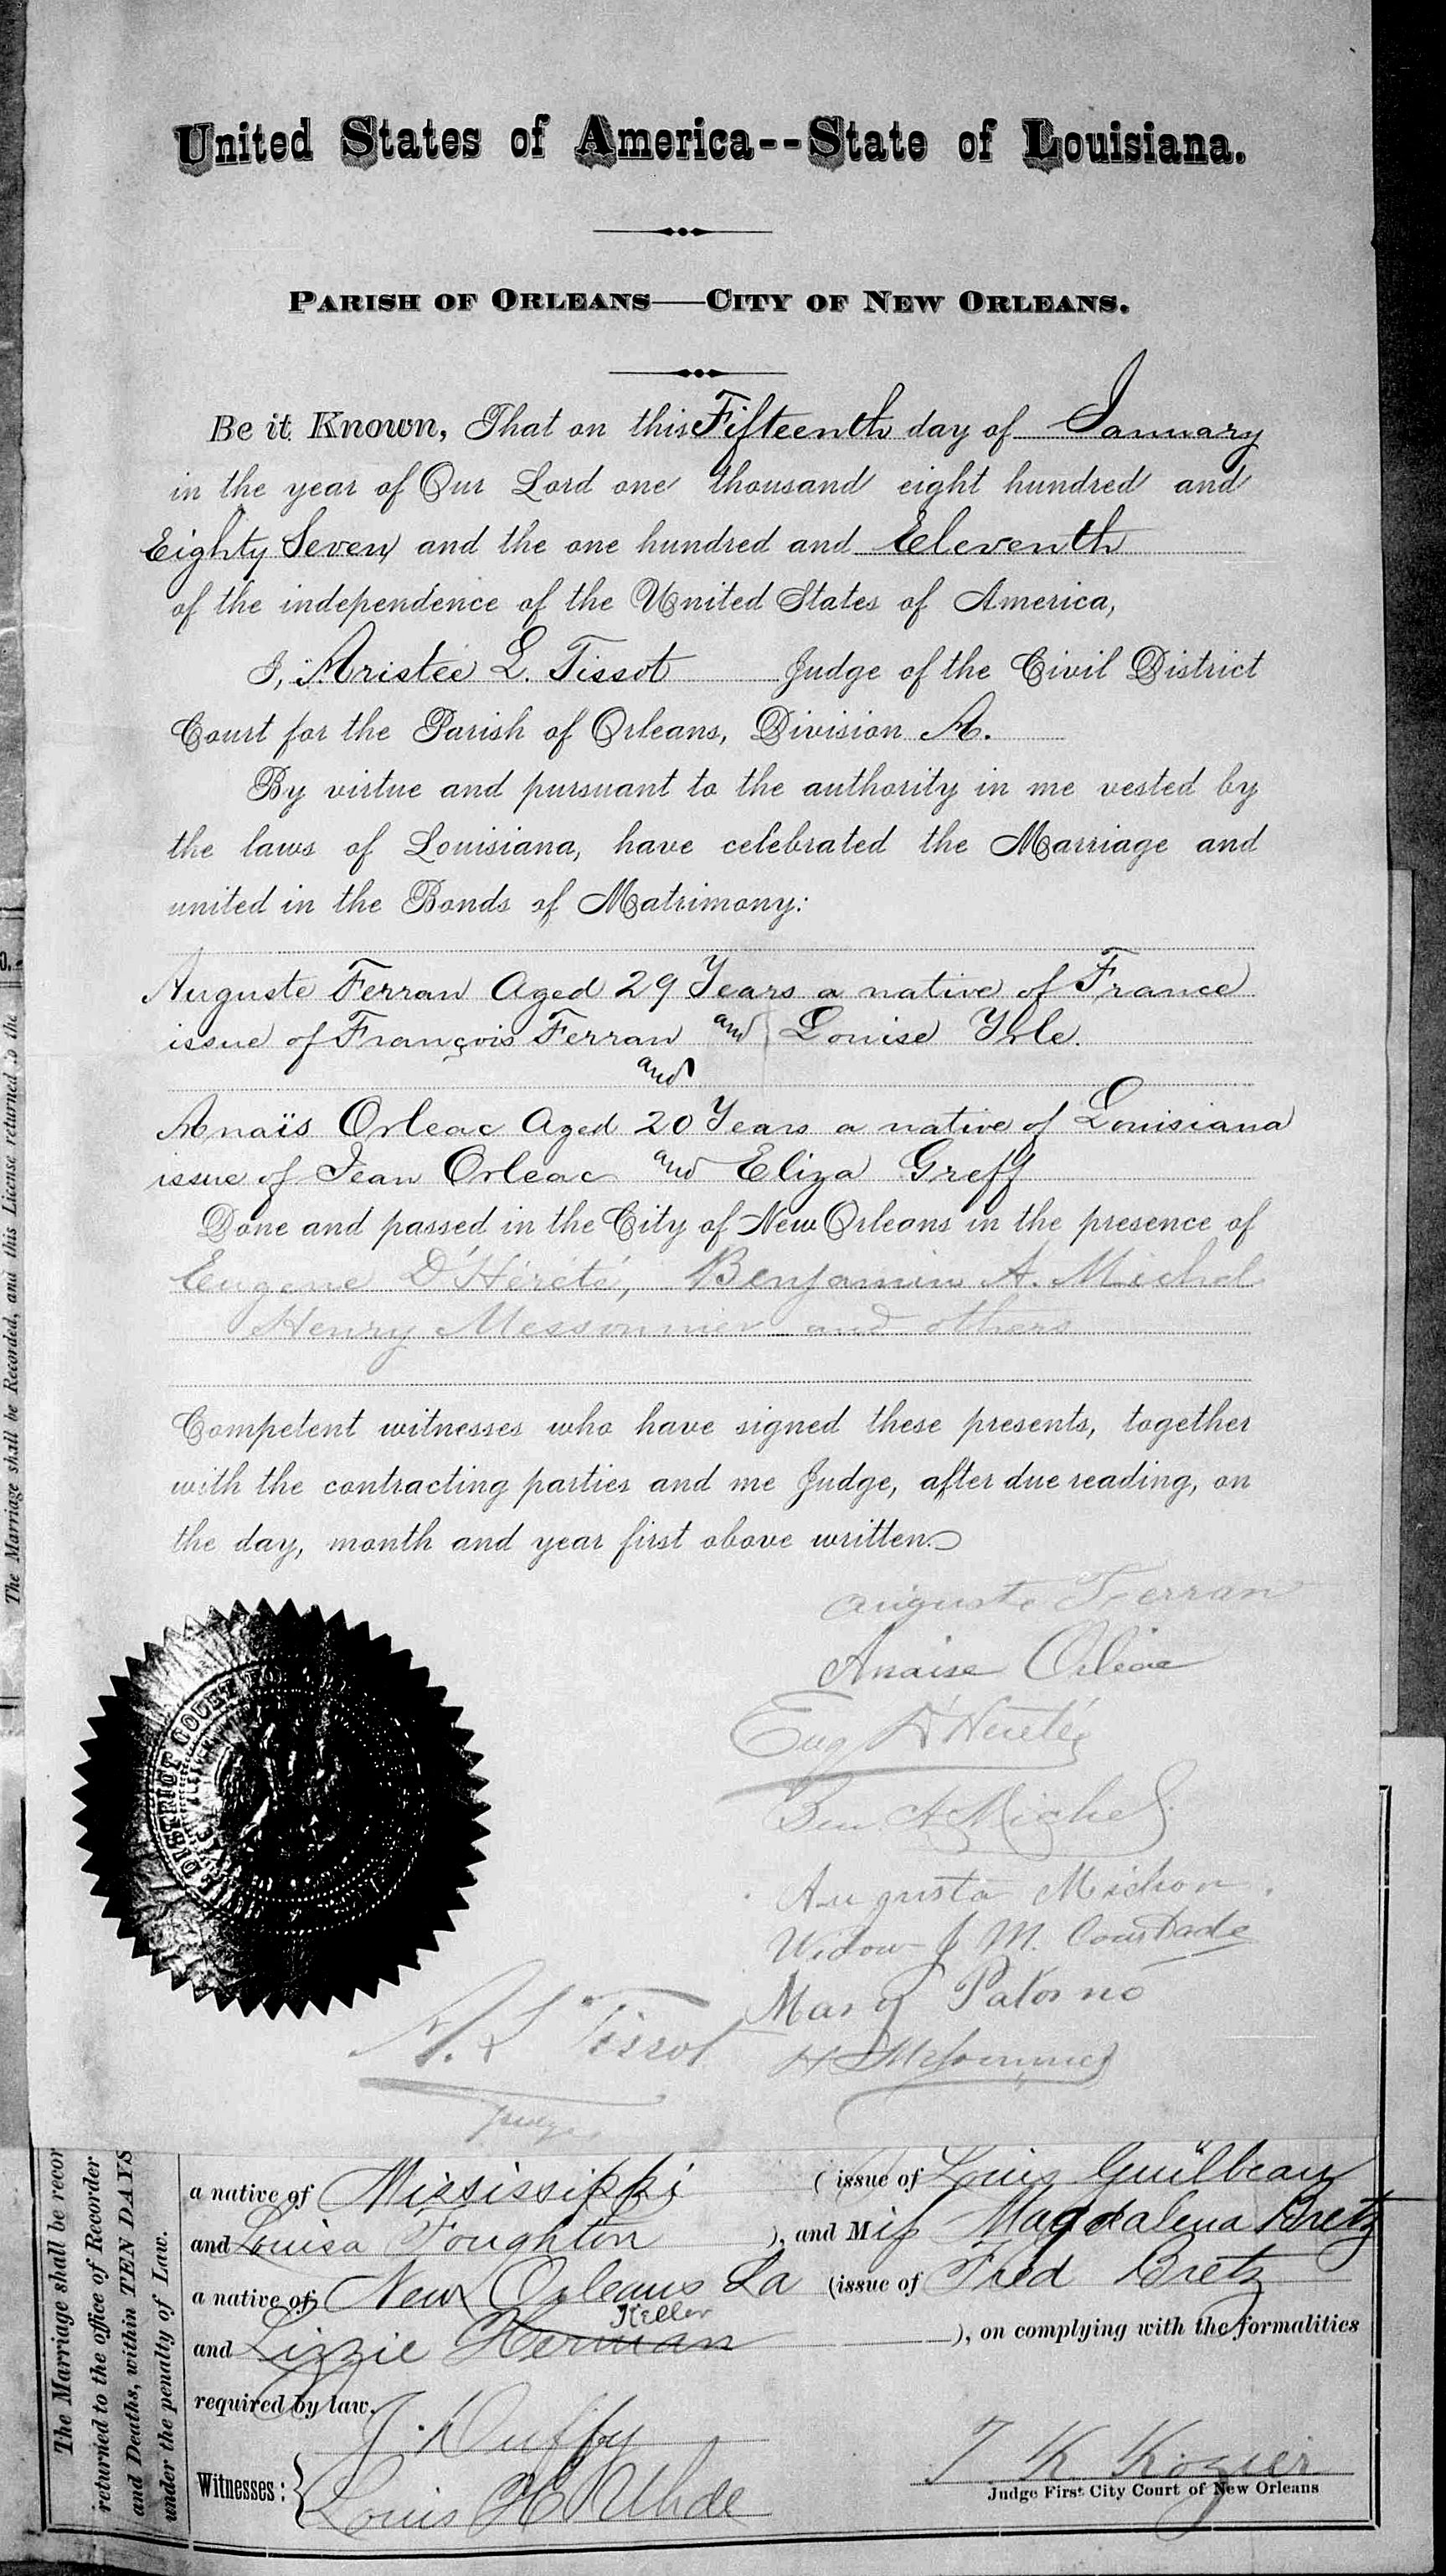 United States of America--State of Louisiana.
Parish of Orleans—City of New Orleans.
Be it Known, That on this Fifteenth day of January
in the year of Our Lord one thousand eight hundred and
Eighty Seven and the one hundred and Eleventh
of the independence of the United States of America,
I, Aristée L. Tissot Judge of the Civil District
Court for the Parish of Orleans, Division A.
By virtue and pursuant to the authority in me vested by
the laws of Louisiana, have celebrated the Marriage and
united in the Bonds of Matrimony:
Auguste Ferran Aged 29 Years a native of France
issue of François Ferran and Louise
and
Anaïs Orleac Aged 20 Years a native of Louisiana
issue of Jean Orleac and Eliza Greff
Done and passed in the City of New Orleans in the presence of
Eugene D'Hérété, Benjamin A. Michel
Henry Messonnier and others
Competent witnesses who have signed these presents, together
with the contracting parties and me Judge, after due reading, on
the day, month and year first above written.
Auguste Ferran
Anaise Orleac
Eug D'Hérété
Ben A Michel
Augusta Michon.
Widow J M. Courtade
Mary Patorno
A. L Tissot
Judge
DISTRICT COURT
The Marriage shall be Recorded, and this License returned to the
The Marriage shall be recor
returned to the office of Recorder
and Deaths, within TEN DAYS
under the penalty of Law.
a native of Mississippi (issue of Louis Guilbeau
and Louisa Foughton ), and Miss Magdalena Bretz
a native of New Orleans La (issue of Fred Bretz
Keller
and Lizzie Herman ), on complying with the formalities
required by law.
J. Duffy
T K Kozier
Witnesses:
Judge First City Court of New Orleans
Louis H Uhde